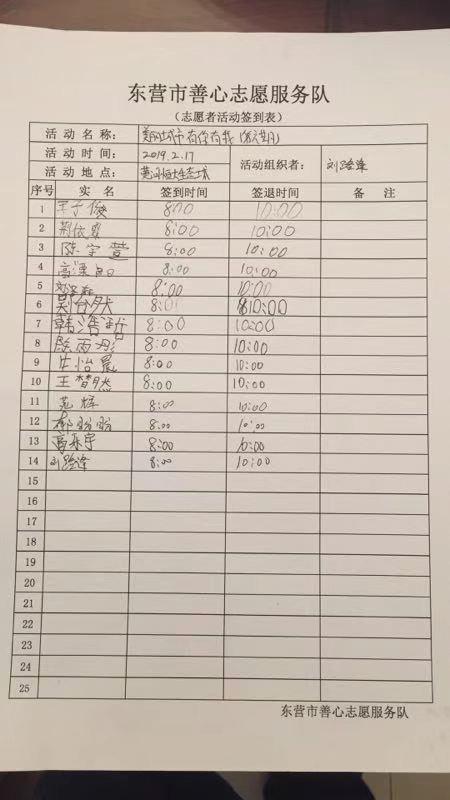 东营市善心志愿服务队
（志愿者活动签到表）
活动名称： 美丽城市有你有我
活动时间： 2019.2.17 活动组织者：
活动地点：
序号 实名 签到时间 签退时间 备注
1 王子俊 8:00 10:00
2 荆依 8:00 10:00
3 陈宇萱 8:00 10:00
4 高 8:00 10:00
5 8:00 10:00
6 8:00 10:00
7 韩浩 8:00 10:00
8 殷雨彤 8:00 10:00
9 怡晨 8:00 10:00
10 王梦然 8:00 10:00
11 范辉 8:00 10:00
12 郭盼盼 8:00 10:00
13 高乐宇 8:00 10:00
14 刘 8:00 10:00
15
16
17
18
19
20
21
22
23
24
25
东营市善心志愿服务队